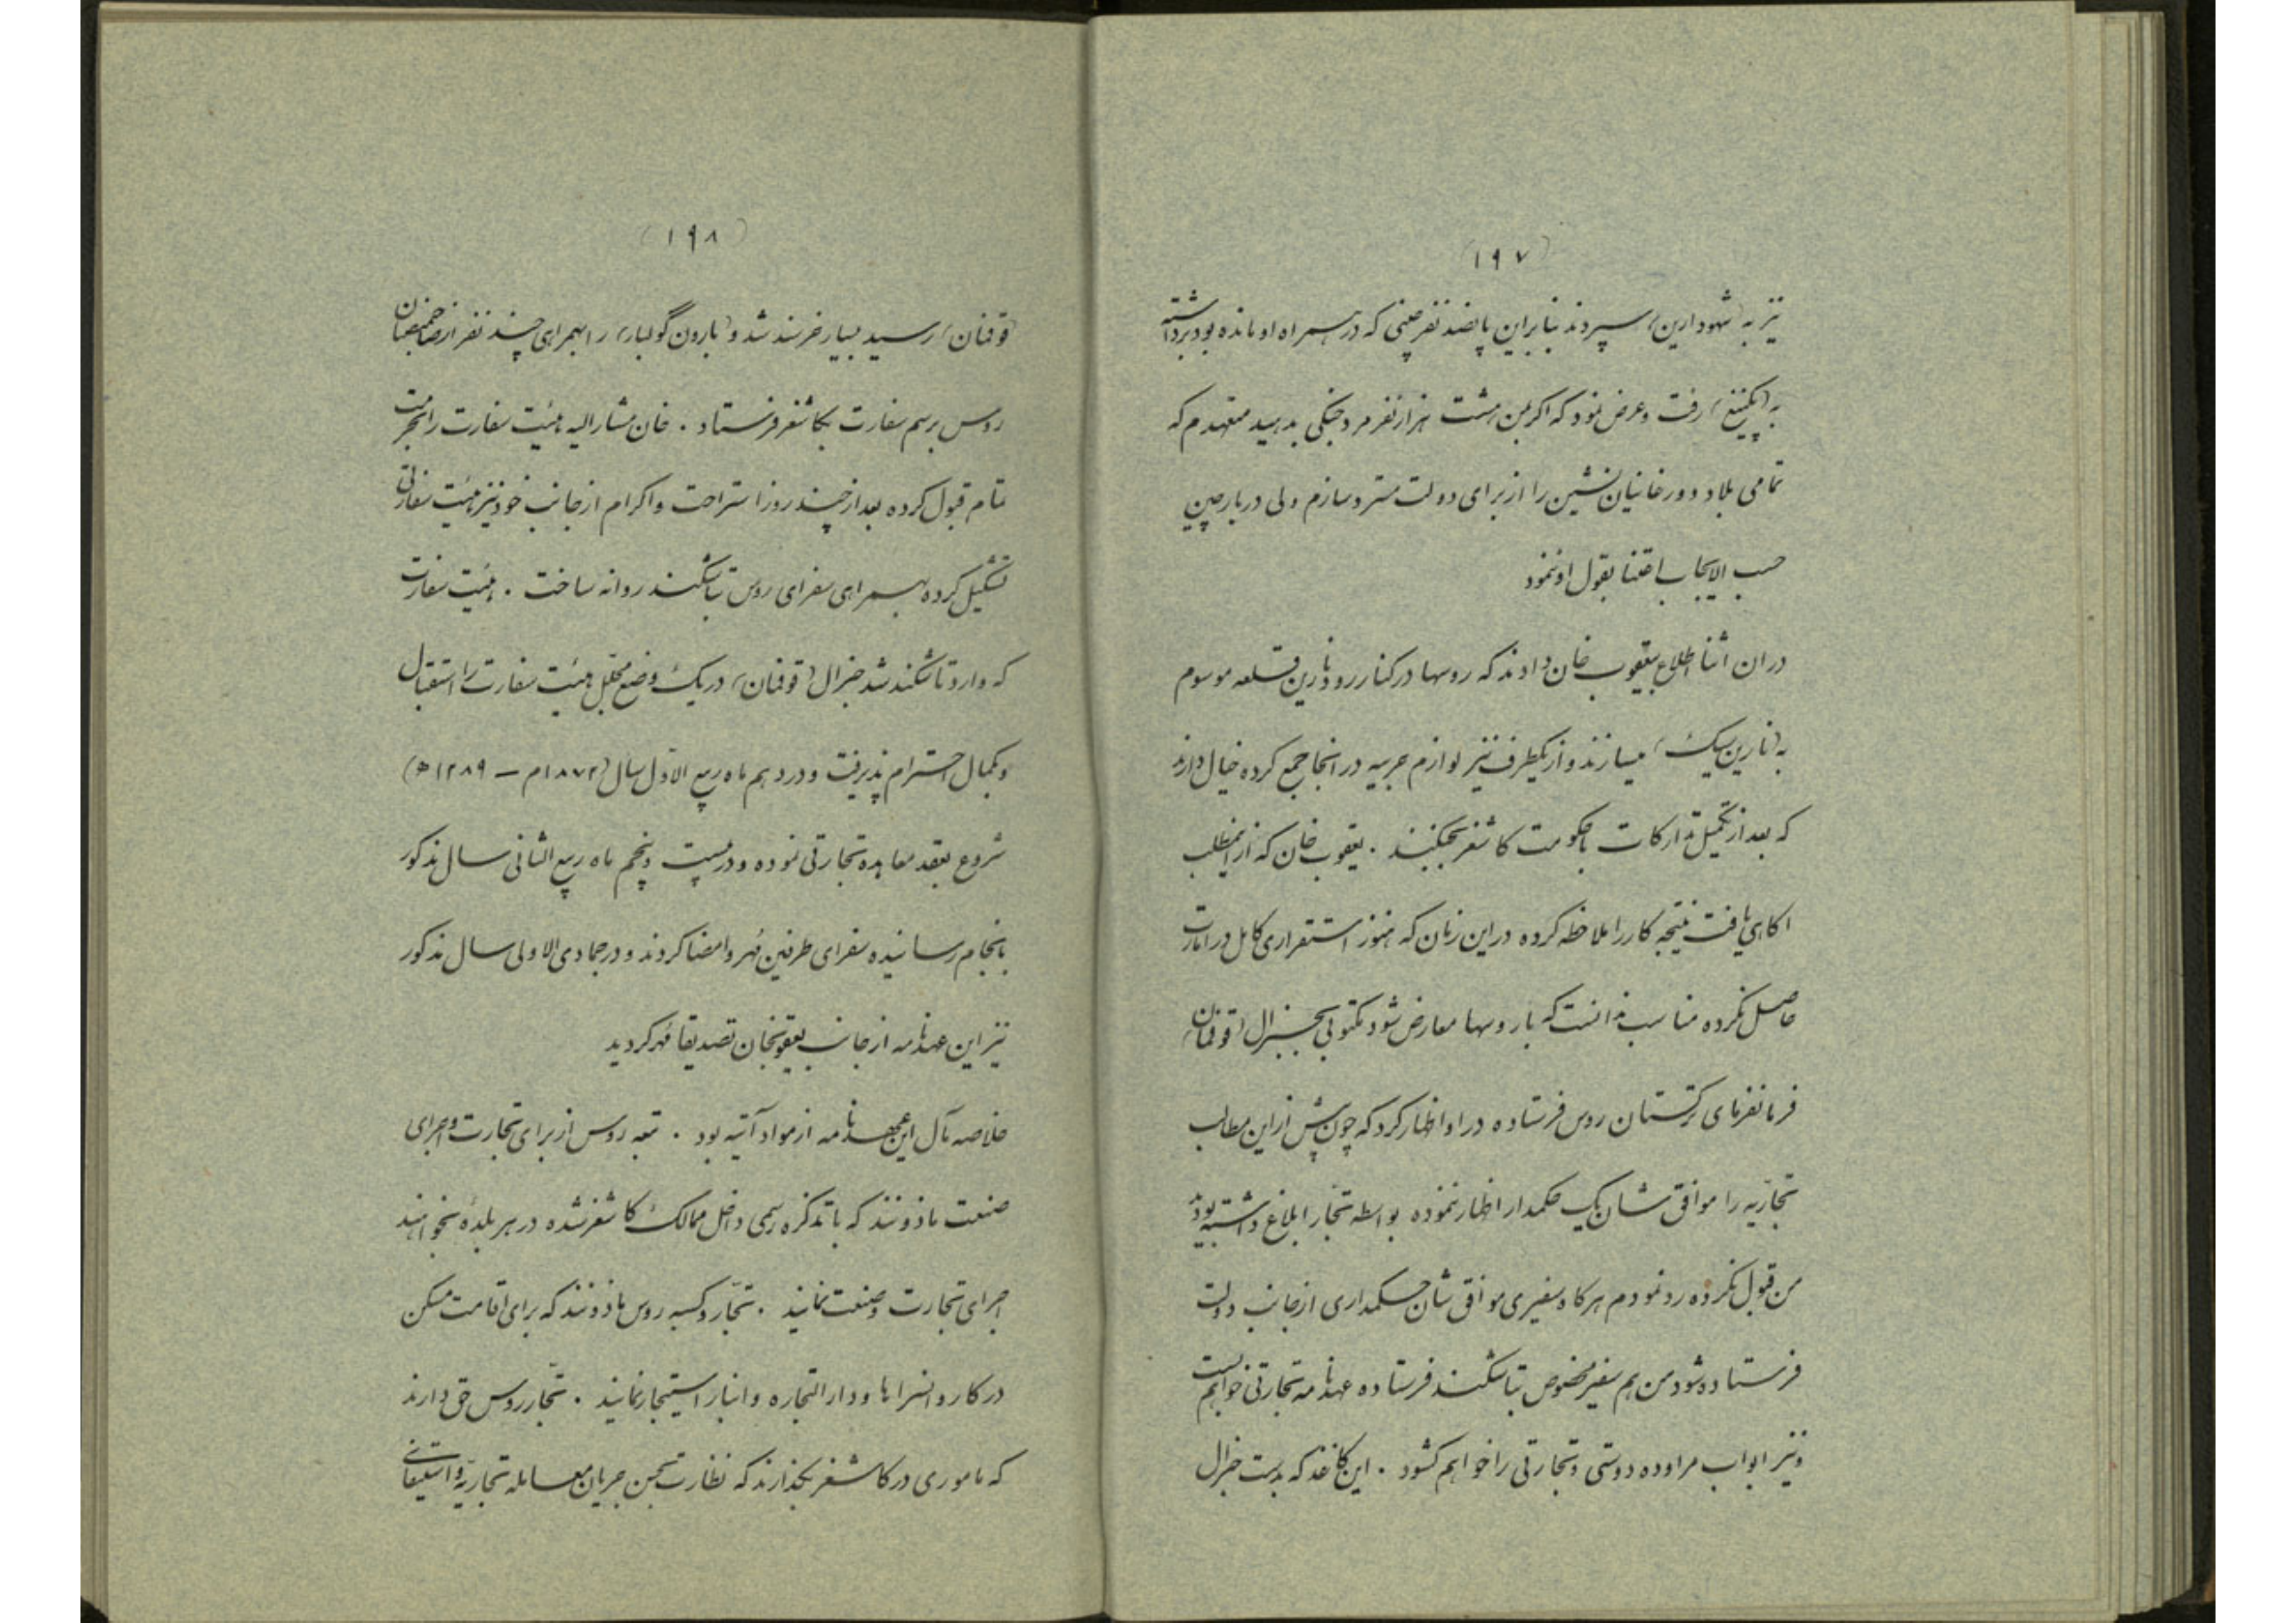 (۱۹۷)
نیز به (شهودارین) سپردند بنابراین پانصد نفر چینی که در همراه او مانده بود برداشته
به (پکینغ) رفت و عرض نمود که اکر بمن هشت هزار نفر مرد جنکی بدهید متعهدم که
تمامی بلاد دورخانیان نشین را از برای دولت مسترد سازم ولی دربار چین
حسب الایجاب اعتنا بقول او ننمود
در ان اثنا اطلاع بیعقوب خان دادند که روسها در کنار رود نارین قلعه موسوم
به (نارین سیک) میسازند و از یکطرف نیز لوازم حربیه در انجا جمع کرده خیال دارند
که بعد از تکمیل تدارکات با حکومت کاشغر بجنکند . یعقوب خان که از اینمطلب
اکاهی یافت نتیجه کار را ملاحظه کرده در این زمان که هنوز استقراری کامل در امارت
حاصل نکرده مناسب ندانست که با روسها معارض شود مکتوبی بجنرال (قوفمان)
فرمانفرمای ترکستان روس فرستاده در او اظهار کرد که چون پیش از این مطالب
تجاریه را موافق شان یک حکمدار اظهار ننموده بواسطه تجار ابلاغ داشته بودند
من قبول نکرده رد نمودم هرکاه سفیری موافق شان حکمداری از جانب دولت
فرستاده شود من هم سفیر مخصوص بتاشکند فرستاده عهدنامه تجارتی خواهم بست
و نیز ابواب مراوده دوستی و تجارتی را خواهم کشود . این کاغذ که بدست جنرال
(۱۹۸)
(قوفمان) رسید بسیار خرسند شد و (بارون گولبار) را بهمراهی چند نفر از صاحبمنصبان
روس برسم سفارت بکاشغر فرستاد . خان مشارالیه هیئت سفارت را بحرمت
تمام قبول کرده بعد از چند روز استراحت و اکرام از جانب خود نیز هیئت سفارتی
تشکیل کرده بهمراهی سفرای روس بتاشکند روانه ساخت . هیئت سفارت
که وارد تاشکند شد جنرال (قوفمان) در یک وضع مجلل هیئت سفارت را استقبال
و بکمال احترام پذیرفت و در دهم ماه ربیع الاول سال (۱۸۷۲م – ۱۲۸۹ه)
شروع بعقد معاهده تجارتی نموده و در بیست و پنجم ماه ربیع الثانی سال مذکور
بانجام رسانیده سفرای طرفین مُهر و امضا کردند و در جمادی الاولی سال مذکور
نیز این عهدنامه از جانب یعقوبخان تصدیقا مُهر کردید
خلاصه مآل این عهدنامه از مواد آتیه بود . تبعه روس از برای تجارت و اجرای
صنعت ماذونند که با تذکره رسمی داخل ممالک کاشغر شده در هر بلدهٔ بخواهند
اجرای تجارت و صنعت نمایند . تجّار و کسبه روس ماذونند که برای اقامت مسکن
در کاروانسراها و دارالتجاره و انبار استیجار نمایند . تجّار روس حق دارند
که ماموری در کاشغر بکذارند که نظارت بحسن جریان معامله تجاریّه و